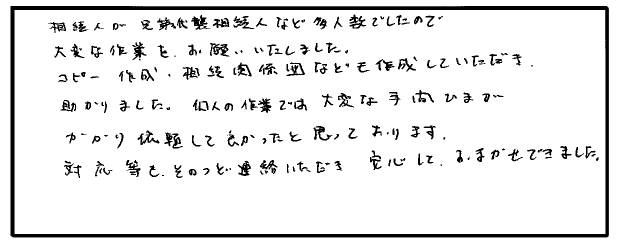 相続人が兄弟代襲相続人など多人数でしたので
大変な作業を、お願いいたしました。
コピー作成・相続関係図なども作成していただき、
助かりました。個人の作業では大変な手間ひまが
かかり依頼して良かったと思っております。
対応等も、そのつど連絡いただき安心して、おまかせできました。